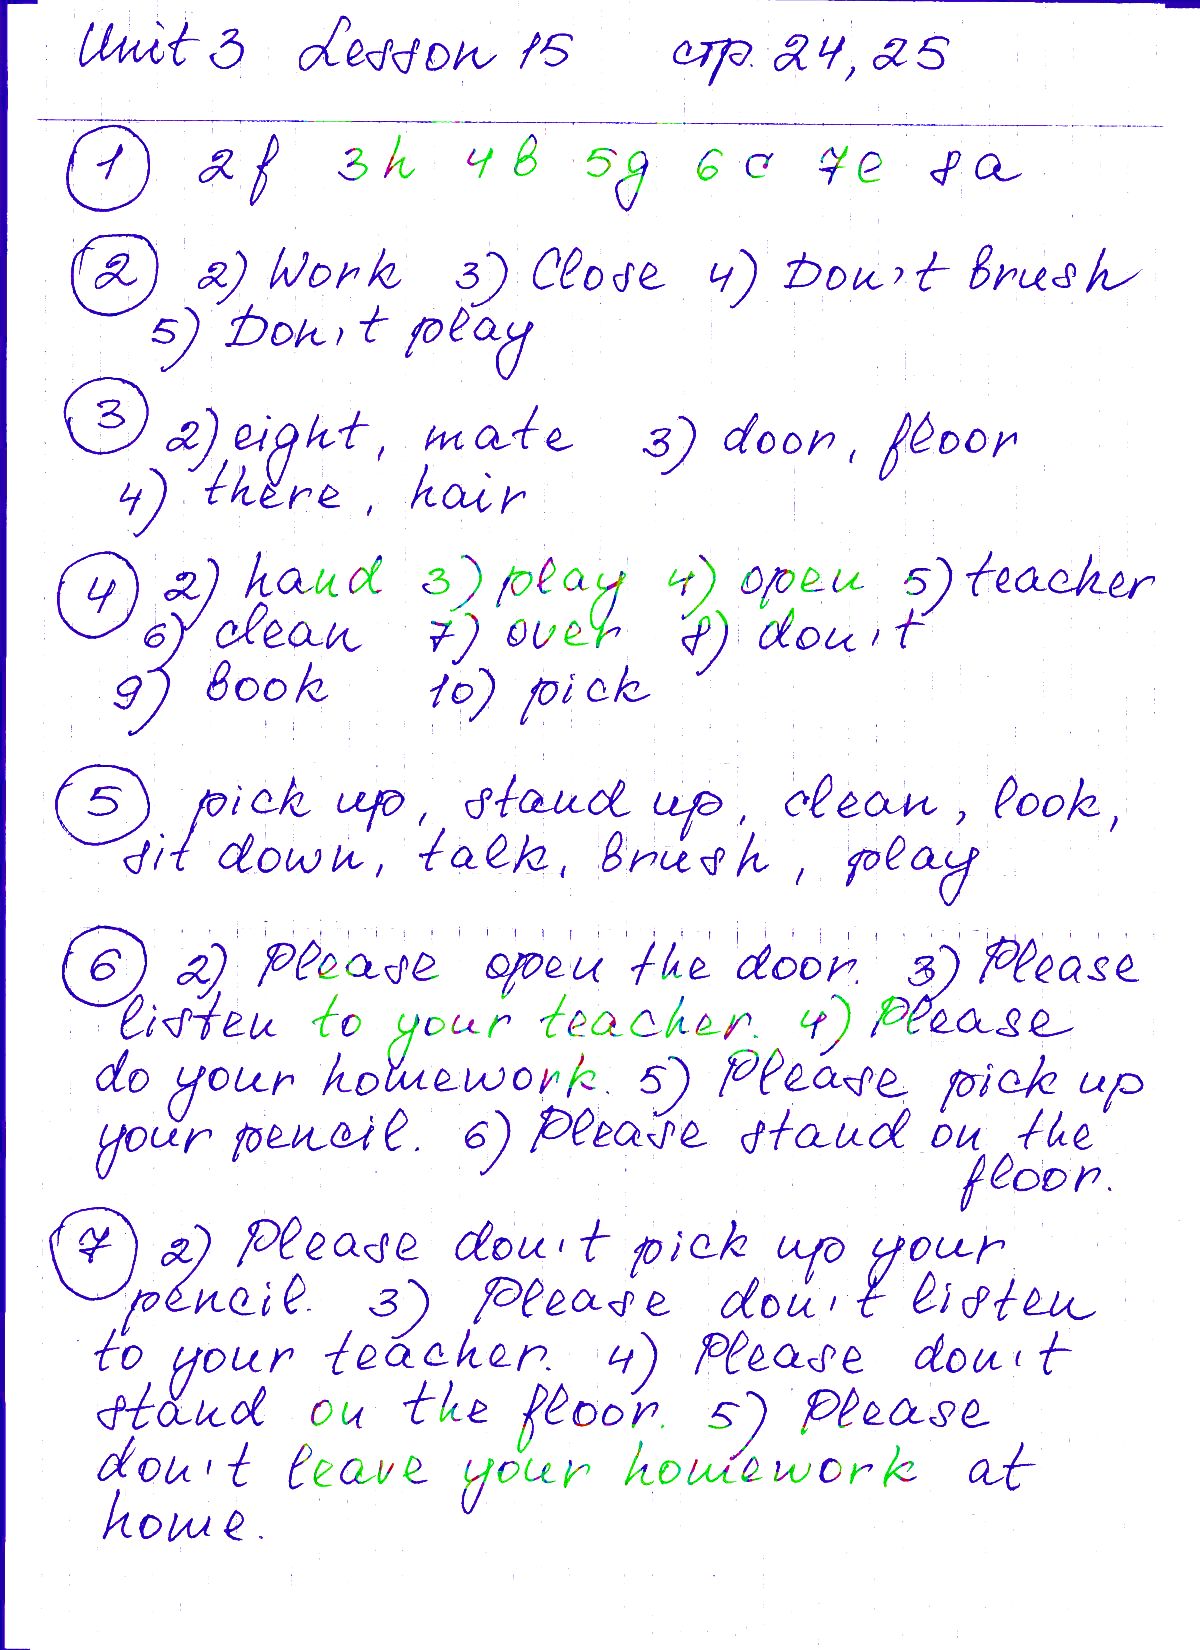 Unit 3 Lesson 15 стр. 24, 25
1 2f 3h 4b 5g 6c 7e 8a
2 2) Work 3) Close 4) Don't brush
5) Don't play
3 2) eight, mate 3) door, floor
4) there, hair
4 2) hand 3) play 4) open 5) teacher
6) clean 7) over 8) don't
9) book 10) pick
5 pick up, stand up, clean, look,
sit down, talk, brush, play
6 2) Please open the door. 3) Please
listen to your teacher. 4) Please
do your homework. 5) Please pick up
your pencil. 6) Please stand on the
floor.
7 2) Please don't pick up your
pencil. 3) Please don't listen
to your teacher. 4) Please don't
stand on the floor. 5) Please
don't leave your homework at
home.